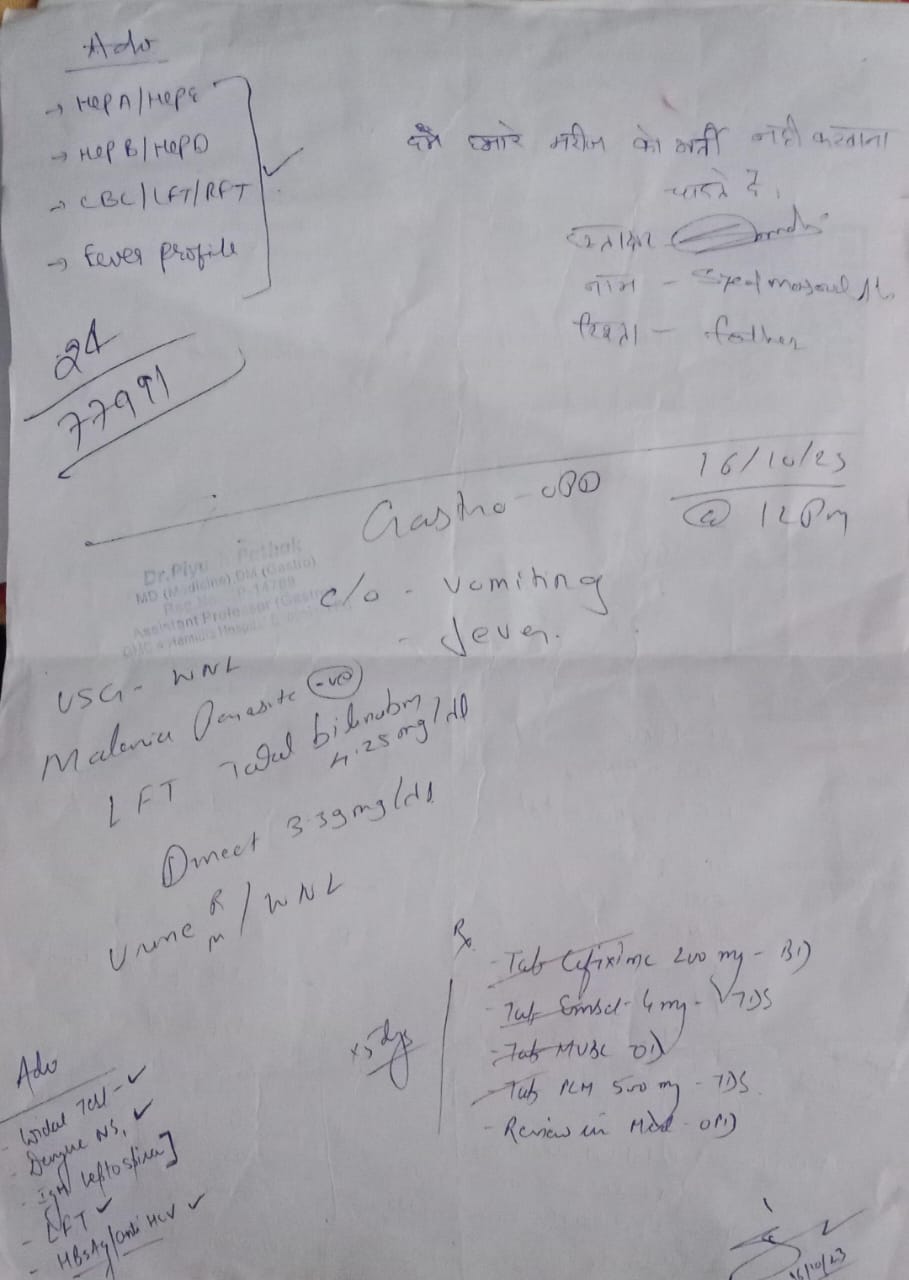 Adv
→ Hep A/Hep E
→ Hep B/Hep D
→ CBC/LFT/RFT
→ Fever profile
24
77991
हम हमारे मरीज को भर्ती नहीं करवाना
चाहते है.
हस्ताक्षर
नाम - Syed
रिश्ता - father
16/10/23
@ 12 Pm
Gastro-OPD
Dr.Piyu Pathak
MD (Medicine) DM (Gastro)
Assistant Professor (Gastro)
GMC & Hamidia Hospital
c/o - vomiting
- fever.
USG- WNL
Malaria Parasite -ve
LFT Total bilirubin
4.25 mg/dl
Direct 3.39 mg/dl
Urine R/M WNL
Rx
- Tab Cefixime 200 mg - BD
- Tab Emset 4 mg - TDS
- Tab MVBC OD
- Tab PCM 500 mg - TDS
- Review in Med - OPD
x 5 dys
Adv
- Widal Test - ✓
- Dengue NS1 ✓
- IgM Leptospira]
- LFT ✓
- HBsAg/anti HCV ✓
16/10/23